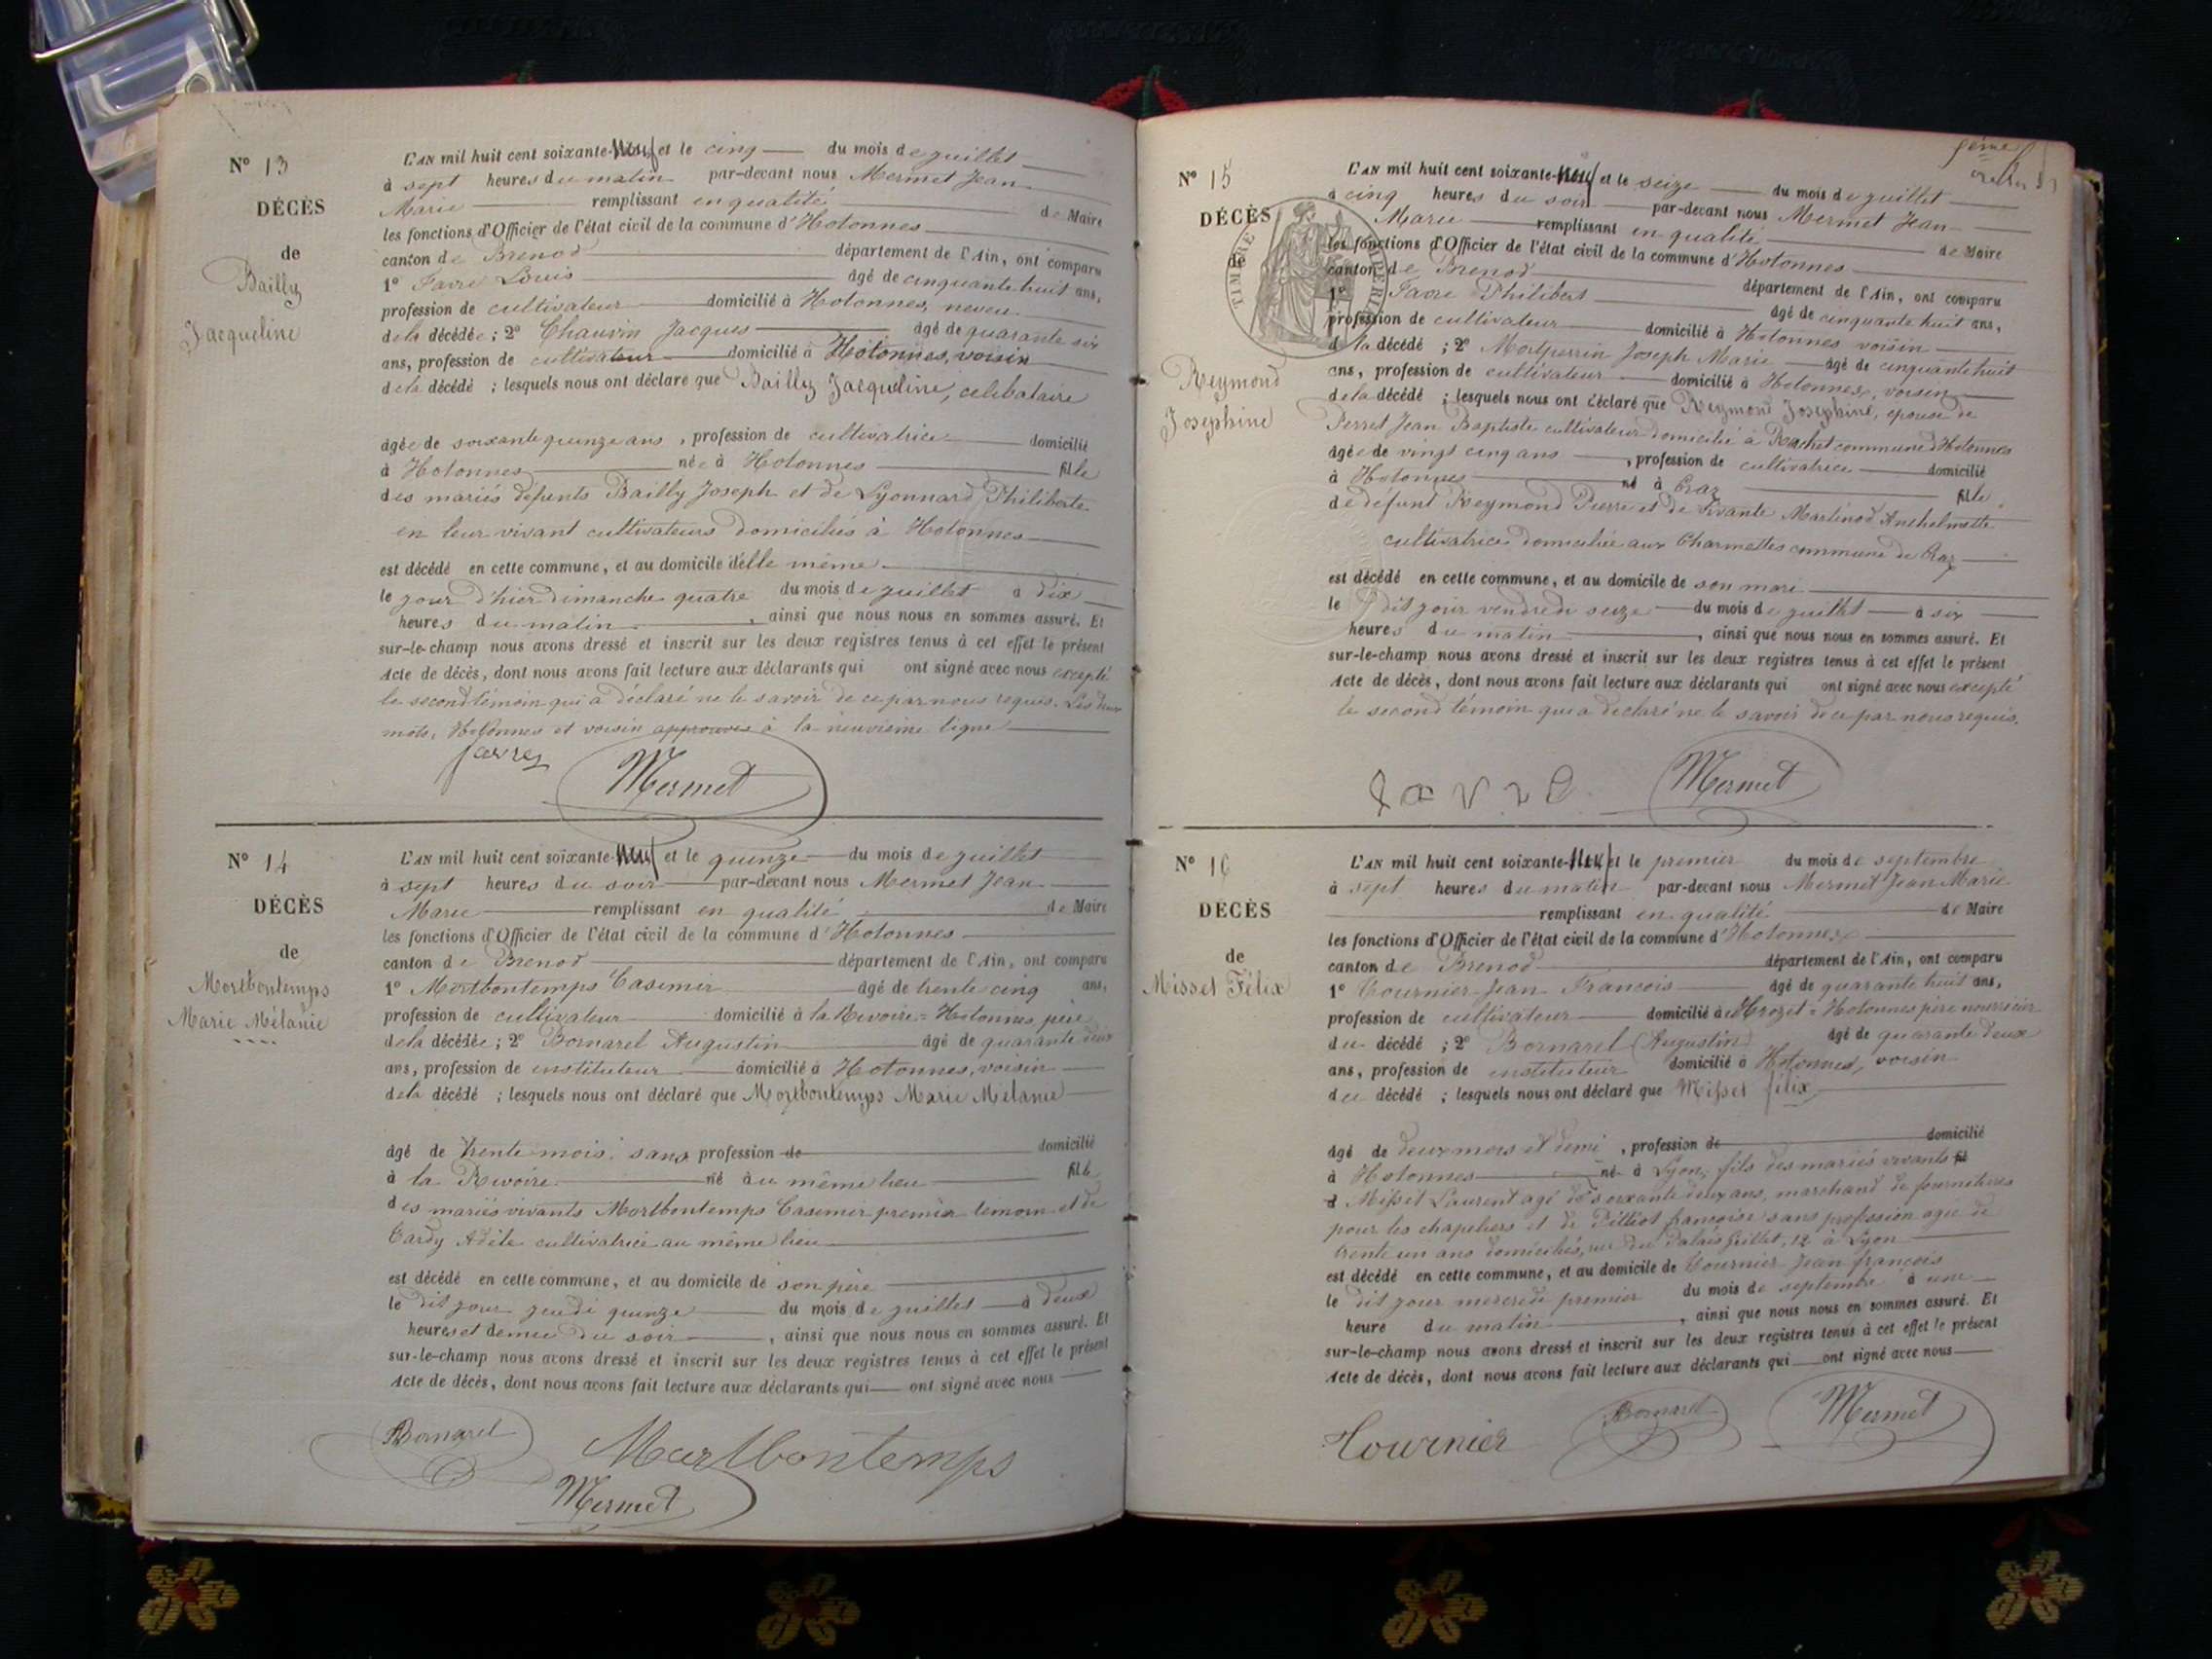 N° 13
DÉCÈS
de
Bailly
Jacqueline
L'AN mil huit cent soixante-neuf et le cinq du mois de juillet
à sept heures du matin par-devant nous Mermet Jean
Marie remplissant en qualité de Maire
les fonctions d'Officier de l'état civil de la commune d'Hotonnes
canton de Brenod département de l'Ain, ont comparu
1° Favre Louis âgé de cinquante huit ans,
profession de cultivateur domicilié à Hotonnes, neveu
de la décédée ; 2° Chauvin Jacques âgé de quarante six
ans, profession de cultivateur domicilié à Hotonnes, voisin
de la décédé ; lesquels nous ont déclaré que Bailly Jacqueline, célibataire
âgée de soixante quinze ans, profession de cultivatrice domicilié
à Hotonnes née à Hotonnes fille
des mariés défunts Bailly Joseph et de Lyonnard Philiberte
en leur vivant cultivateurs domiciliés à Hotonnes
est décédé en cette commune, et au domicile d'elle même
le jour d'hier dimanche quatre du mois de juillet à dix
heures du matin, ainsi que nous nous en sommes assuré. Et
sur-le-champ nous avons dressé et inscrit sur les deux registres tenus à cet effet le présent
Acte de décès, dont nous avons fait lecture aux déclarants qui ont signé avec nous excepté
le second témoin qui a déclaré ne le savoir de ce par nous requis. Les deux
mots, Hotonnes et voisin approuvés à la neuvième ligne
favre
Mermet
N° 14
DÉCÈS
de
Mortbontemps
Marie Mélanie
L'AN mil huit cent soixante-neuf et le quinze du mois de juillet
à sept heures du soir par-devant nous Mermet Jean
Marie remplissant en qualité de Maire
les fonctions d'Officier de l'état civil de la commune d'Hotonnes
canton de Brenod département de l'Ain, ont comparu
1° Mortbontemps Casimir âgé de trente cinq ans,
profession de cultivateur domicilié à la Rivoire = Hotonnes père
de la décédée ; 2° Bornarel Augustin âgé de quarante deux
ans, profession de instituteur domicilié à Hotonnes, voisin
de la décédé ; lesquels nous ont déclaré que Mortbontemps Marie Mélanie
âgé de trente mois, sans profession de domicilié
à la Rivoire né au même lieu fille
des mariés vivants Mortbontemps Casimir premier témoin et de
Tardy Adèle cultivatrice au même lieu
est décédé en cette commune, et au domicile de son père
le dit jour jeudi quinze du mois de juillet à deux
heures et demie du soir, ainsi que nous nous en sommes assuré. Et
sur-le-champ nous avons dressé et inscrit sur les deux registres tenus à cet effet le présent
Acte de décès, dont nous avons fait lecture aux déclarants qui ont signé avec nous
Bornarel
Mortbontemps
Mermet
N° 15
DÉCÈS
de
TIMBRE IMPERIAL
Reymond
Josephine
L'AN mil huit cent soixante-neuf et le seize du mois de juillet
à cinq heures du soir par-devant nous Mermet Jean
Marie remplissant en qualité de Maire
les fonctions d'Officier de l'état civil de la commune d'Hotonnes
canton de Brenod département de l'Ain, ont comparu
1° Favre Philibert âgé de cinquante huit ans,
profession de cultivateur domicilié à Hotonnes voisin
de la décédé ; 2° Montperrin Joseph Marie âgé de cinquante huit
ans, profession de cultivateur domicilié à Hotonnes, voisin
de la décédé ; lesquels nous ont déclaré que Reymond Josephine, épouse de
Perret Jean Baptiste cultivateur domicilié à Rachet commune d'Hotonnes
âgée de vingt cinq ans, profession de cultivatrice domicilié
à Hotonnes né à Craz fille
de défunt Reymond Pierre et de vivante Martinod Anthelmette
cultivatrice domiciliée aux Charmettes commune de Craz
est décédé en cette commune, et au domicile de son mari
le dit jour vendredi seize du mois de juillet à six
heures du matin, ainsi que nous nous en sommes assuré. Et
sur-le-champ nous avons dressé et inscrit sur les deux registres tenus à cet effet le présent
Acte de décès, dont nous avons fait lecture aux déclarants qui ont signé avec nous excepté
le second témoin qui a déclaré ne le savoir de ce par nous requis.
favre
Mermet
N° 16
DÉCÈS
de
Missel Félix
L'AN mil huit cent soixante-neuf et le premier du mois de septembre
à sept heures du matin par-devant nous Mermet Jean Marie
remplissant en qualité de Maire
les fonctions d'Officier de l'état civil de la commune d'Hotonnes
canton de Brenod département de l'Ain, ont comparu
1° Tournier Jean François âgé de quarante huit ans,
profession de cultivateur domicilié à = Hotonnes père nourricier
du décédé ; 2° Bornarel (Augustin) âgé de quarante deux
ans, profession de instituteur domicilié à Hotonnes, voisin
du décédé ; lesquels nous ont déclaré que Missel félix
âgé de deux mois et demi, profession de domicilié
à Hotonnes né à Lyon, fils des mariés vivants
Missel Laurent agé de soixante deux ans, marchand de fournitures
pour les chapeliers et de françoise sans profession agée de
trente un ans domiciliés, rue du Palais Grillet, 12 à Lyon
est décédé en cette commune, et au domicile de Tournier Jean françois
le dit jour mercredi premier du mois de septembre à une
heure du matin, ainsi que nous nous en sommes assuré. Et
sur-le-champ nous avons dressé et inscrit sur les deux registres tenus à cet effet le présent
Acte de décès, dont nous avons fait lecture aux déclarants qui ont signé avec nous
Tournier
Bornarel
Mermet